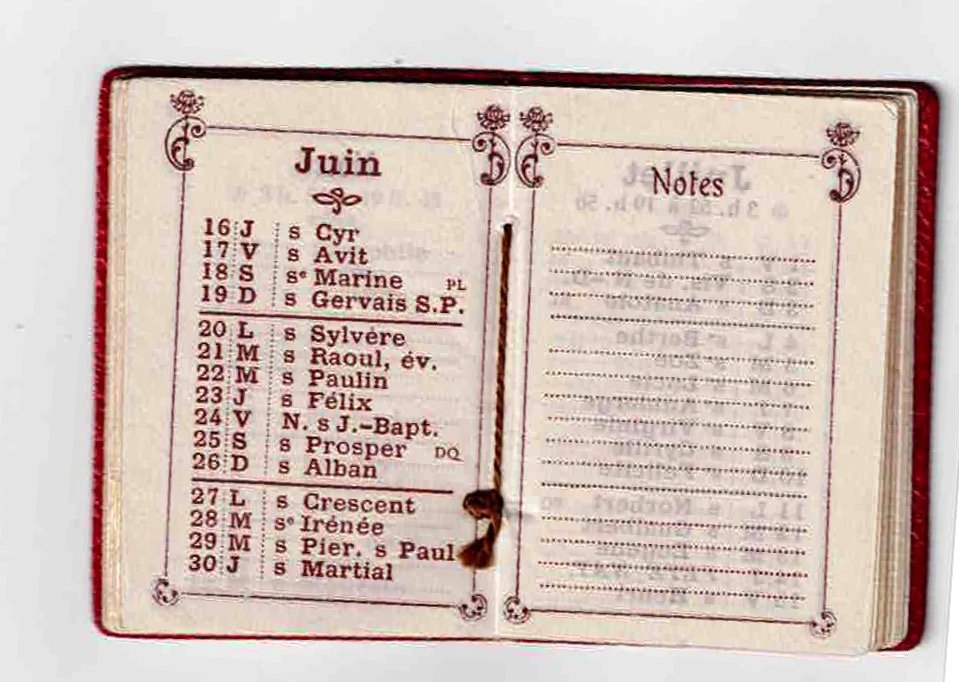 Juin
16 J s Cyr
17 V s Avit
18 S sᵉ Marine PL
19 D s Gervais S.P.
20 L s Sylvère
21 M s Raoul, év.
22 M s Paulin
23 J s Félix
24 V N. s J.-Bapt.
25 S s Prosper DQ
26 D s Alban
27 L s Crescent
28 M sᵉ Irénée
29 M s Pier. s Paul
30 J s Martial
Notes